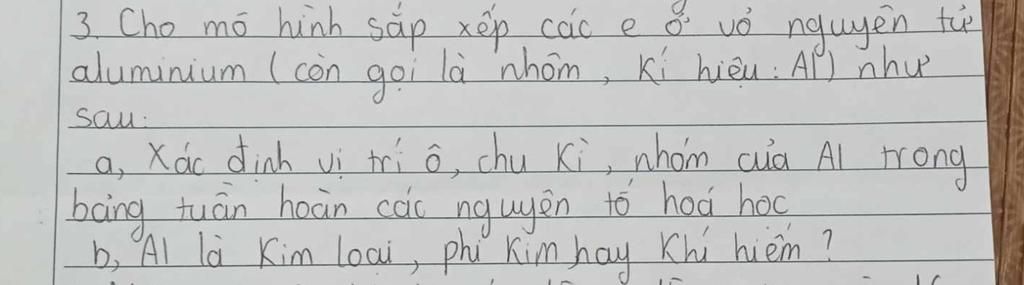 3. Cho mô hình sắp xếp các e ở vỏ nguyên tử
aluminium (còn gọi là nhôm, kí hiệu: Al) như
sau:
a, Xác định vị trí ô, chu kì, nhóm của Al trong
bảng tuần hoàn các nguyên tố hoá học
b, Al là kim loại, phi kim hay khí hiếm?